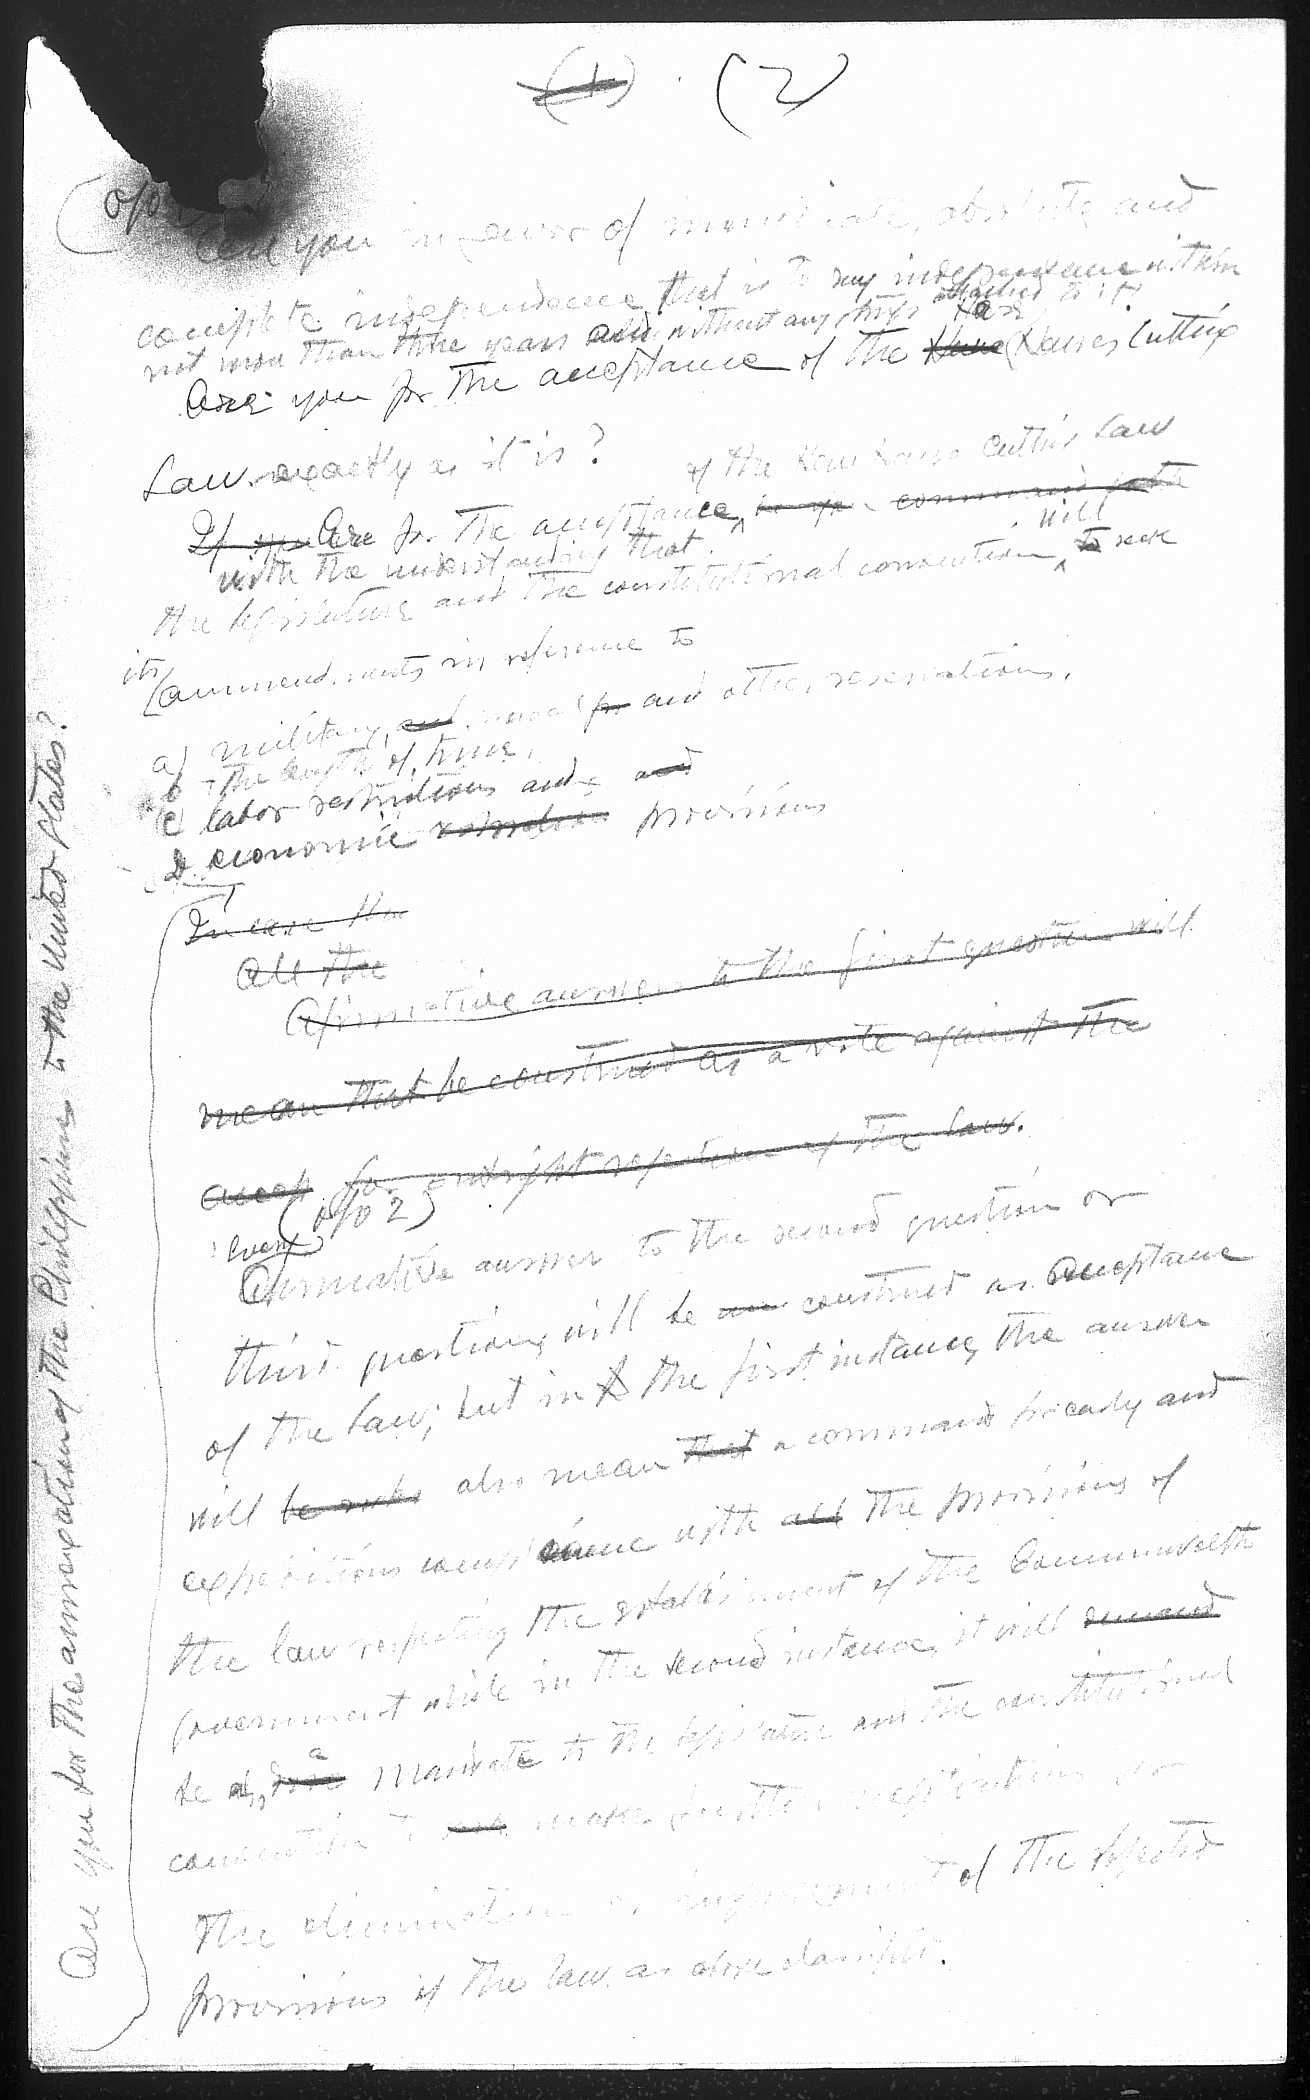 (1) (2)
o/o
Are you in favor of immediate, absolute and
complete independence, that is to say independence within
not more than three years and without any strings attached to it?
Are you for the acceptance of the Hare Hawes Cutting
Law exactly as it is?
of the Hare Hawes Cutting Law
If you Are for the acceptance
with the understanding that
the legislature and the constitutional convention will to seek
its ammendments in reference to
a) military, and naval for and other reservations.
b The length of time.
c labor restrictions and and
d economic provisions
In case the
All the
Afirmative answer to the first question will
mean that be construed as a vote against the
accep for outright rejection of the law.
(o/o 2)
Every
Afirmative answer to the second question or
third question will be construed as acceptance
of the law; but in the first instance, the answer
will be also mean that a command speedy and
expeditious compliance with all the provisions of
the law respecting the establisment of the Commonwealth
government while in the second instance, it will demand
be a mandate to the legislature and the constitutional
convention to seek make further negotiations for
the elimination or improvement of the objected
provisions of the law as above classified.
Are you for the annexation of the Philippines to the United States?